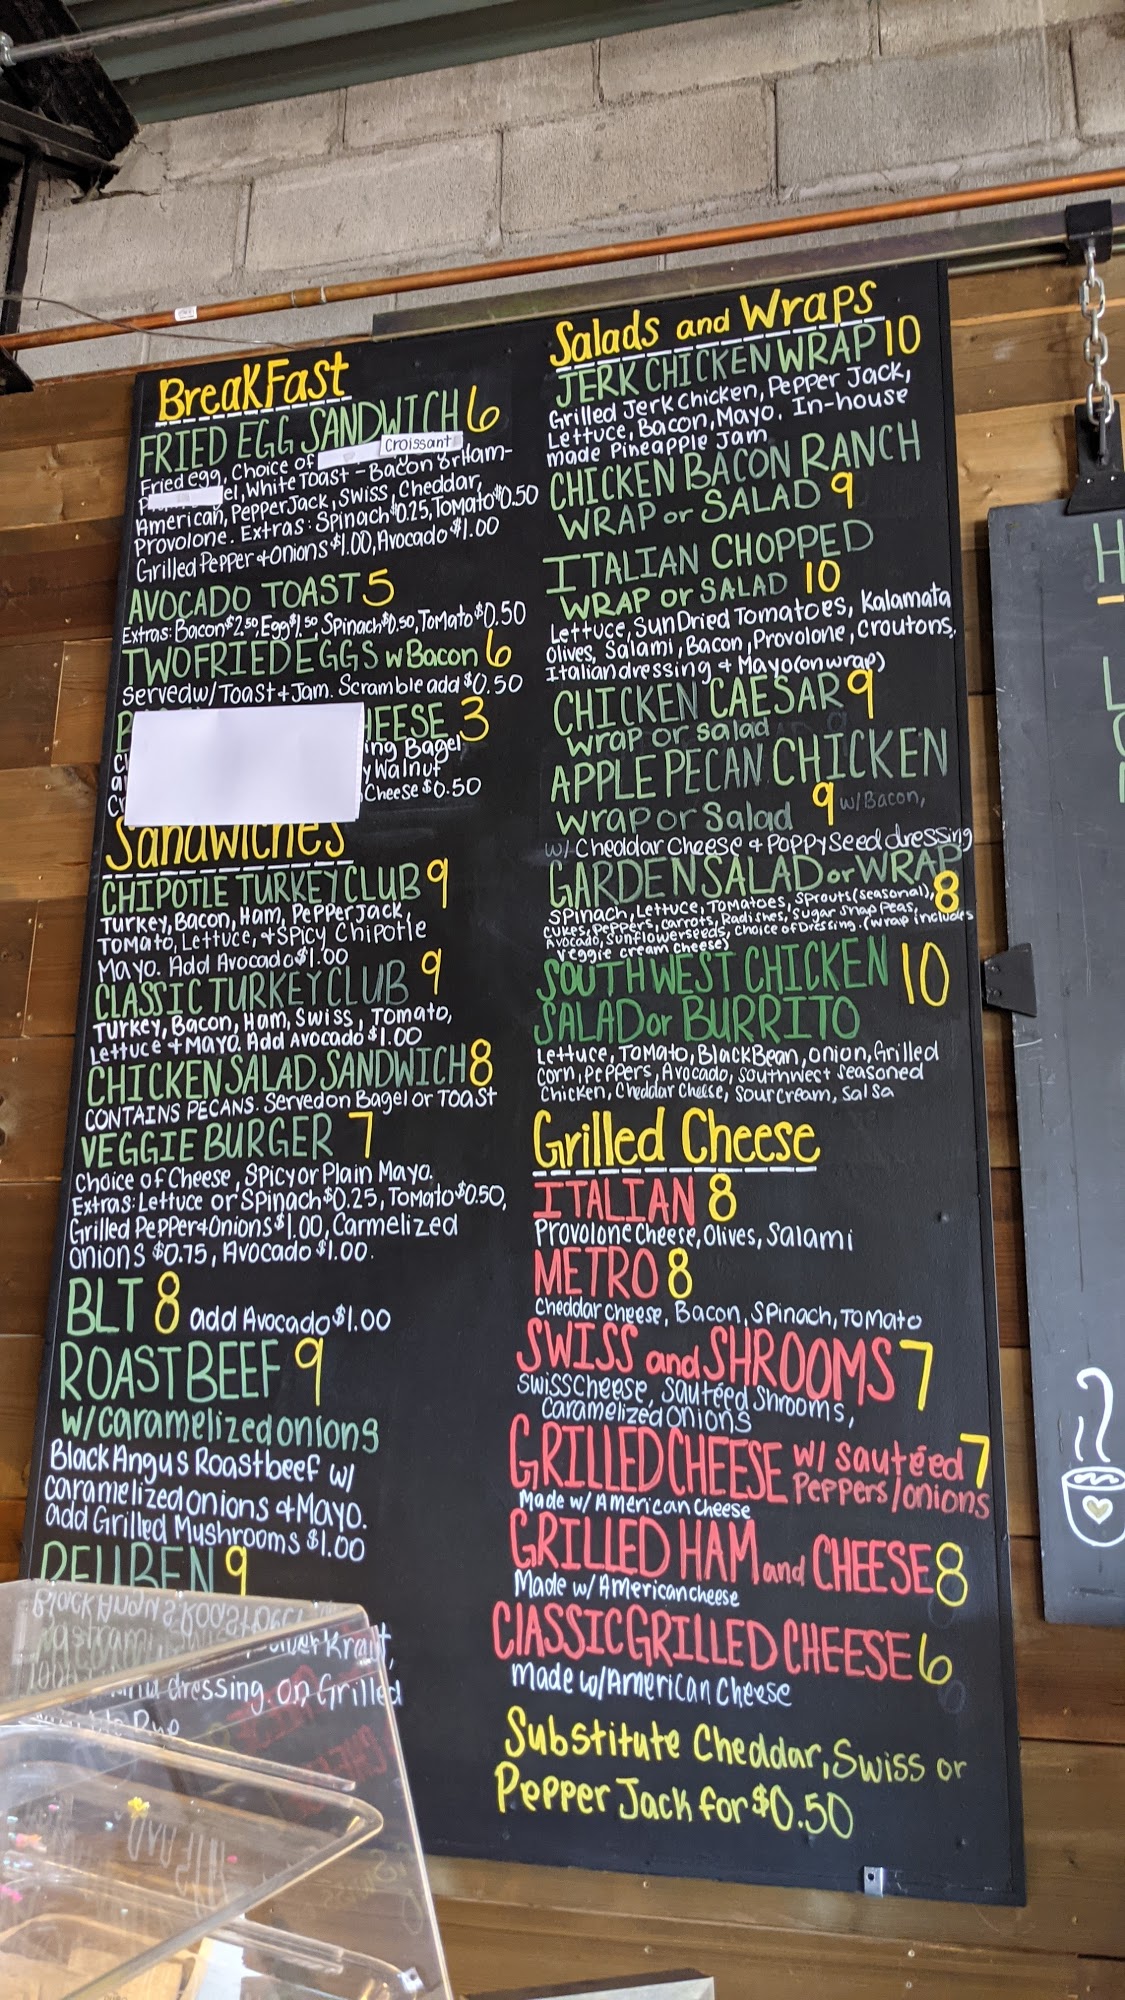 BreakFast
FRIED EGG SANDWICH 6
Croissant
Fried egg, Choice of
el, White Toast - Bacon or Ham-
American, PepperJack, Swiss, Cheddar,
Provolone. Extras: Spinach $0.25, Tomato $0.50
Grilled Pepper + Onions $1.00, Avocado $1.00
AVOCADO TOAST 5
Extras: Bacon $2.50, Egg $1.50 Spinach $0.50, Tomato $0.50
TWO FRIED EGGS w Bacon 6
Served w/ Toast + Jam. Scramble add $0.50
HEESE 3
ing Bagel
y Walnut
Cheese $0.50
Sandwiches
CHIPOTLE TURKEY CLUB 9
Turkey, Bacon, Ham, Pepper Jack,
Tomato, Lettuce, + Spicy Chipotle
Mayo. Add Avocado $1.00
CLASSIC TURKEY CLUB 9
Turkey, Bacon, Ham, Swiss, Tomato,
Lettuce + Mayo. Add Avocado $1.00
CHICKEN SALAD SANDWICH 8
CONTAINS PECANS. Served on Bagel or Toast
VEGGIE BURGER 7
Choice of Cheese, Spicy or Plain Mayo.
Extras: Lettuce or Spinach $0.25, Tomato $0.50,
Grilled Pepper + Onions $1.00, Carmelized
onions $0.75, Avocado $1.00.
BLT 8 add Avocado $1.00
ROAST BEEF 9
w/ caramelized onions
Black Angus Roast beef w/
caramelized onions + Mayo.
add Grilled Mushrooms $1.00
REUBEN 9
dressing. on Grilled
Salads and Wraps
JERK CHICKEN WRAP 10
Grilled Jerk Chicken, Pepper Jack,
Lettuce, Bacon, Mayo. In-house
made Pineapple Jam
CHICKEN BACON RANCH
WRAP or SALAD 9
ITALIAN CHOPPED
WRAP or SALAD 10
Lettuce, Sun Dried Tomatoes, Kalamata
Olives, Salami, Bacon, Provolone, Croutons,
Italian dressing + Mayo (on wrap)
CHICKEN CAESAR 9
wrap or salad
APPLE PECAN CHICKEN
wrap or Salad 9 w/ Bacon,
w/ Cheddar Cheese + Poppy Seed dressing
GARDEN SALAD or WRAP 8
Spinach, Lettuce, Tomatoes, Sprouts (seasonal),
Cukes, Peppers, Carrots, Radishes, Sugar Snap Peas,
Avocado, Sunflower seeds, Choice of Dressing. (Wrap includes
Veggie cream cheese)
SOUTHWEST CHICKEN 10
SALAD or BURRITO
Lettuce, Tomato, Black Bean, onion, Grilled
corn, Peppers, Avocado, Southwest seasoned
Chicken, Cheddar Cheese, Sour cream, Salsa
Grilled Cheese
ITALIAN 8
Provolone Cheese, Olives, Salami
METRO 8
Cheddar cheese, Bacon, Spinach, Tomato
SWISS and SHROOMS 7
Swiss Cheese, Sautéed Shrooms,
Caramelized Onions
GRILLED CHEESE w/ sautéed 7
Peppers/onions
Made w/ American Cheese
GRILLED HAM and CHEESE 8
Made w/ American cheese
CLASSIC GRILLED CHEESE 6
Made w/ American Cheese
Substitute Cheddar, Swiss or
Pepper Jack for $0.50